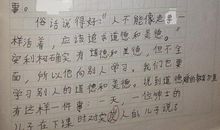 事。
俗话说得好:"人不能像走兽一
样活着,应该追求道德和美德。"
安利柯确实有道德和美德,但不全
面,所以他向别人学习。我们也要
学习别人的道德和美德。说到道德
有这样一件事:一天,一位绅士的
儿子在下课时对实炭人的儿子说: